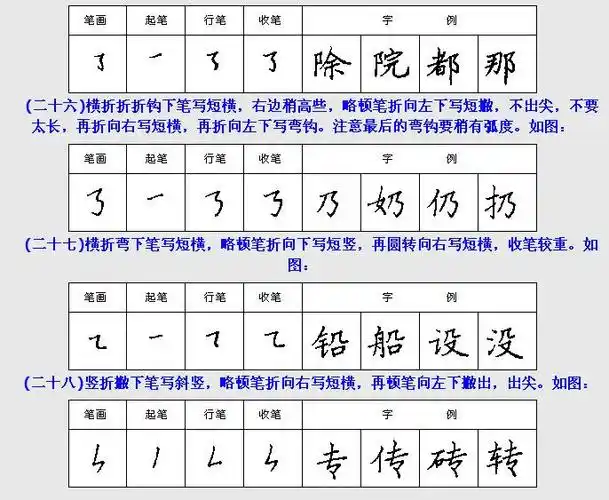 笔画 起笔 行笔 收笔 字 例
㇌ ㇐ ㇋ ㇌ 除 院 都 那
(二十六)横折折折钩下笔写短横，右边稍高些，略顿笔折向左下写短撇，不出尖，不要
太长，再折向右写短横，再折向左下写弯钩。注意最后的弯钩要稍有弧度。如图：
笔画 起笔 行笔 收笔 字 例
㇡ ㇐ ㇋ ㇡ 乃 奶 仍 扔
(二十七)横折弯下笔写短横，略顿笔折向下写短竖，再圆转向右写短横，收笔较重。如
图：
笔画 起笔 行笔 收笔 字 例
㇍ ㇐ ㇕ ㇍ 铅 船 设 没
(二十八)竖折撇下笔写斜竖，略顿笔折向右写短横，再顿笔向左下撇出，出尖。如图：
笔画 起笔 行笔 收笔 字 例
ㄣ 丨 ㇗ ㄣ 专 传 砖 转